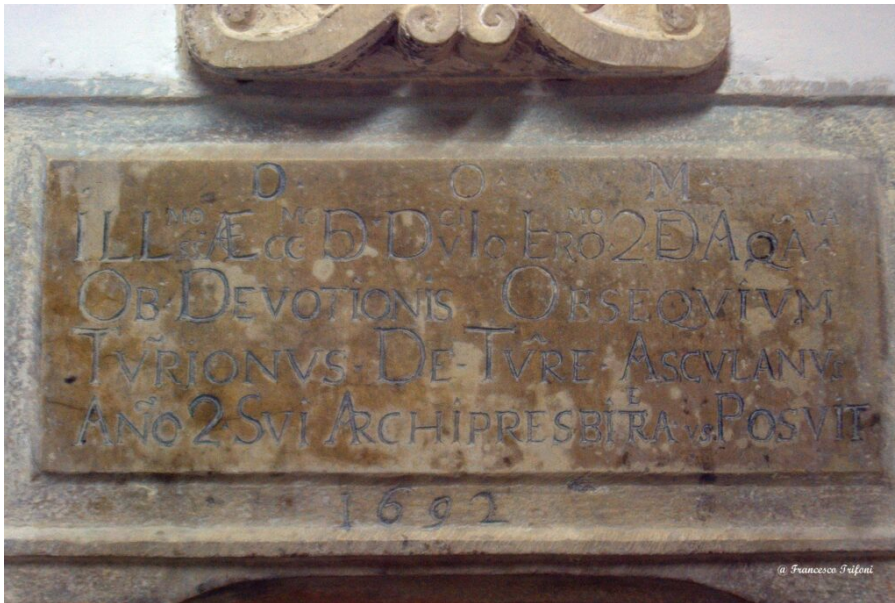 D. O. M.
ILL^MO ET ÆCC^MO D. D. DVCI IO. IERO^MO 2 D AQÂVÂ
OB DEVOTIONIS OBSEQVIVM
TVR̃IONVS. DE. TVR̃E ASCVLANVS
AÑO 2 SVI ARCHIPRESBITRAT^VS. POSVIT
1692
@ Francesco Trifoni